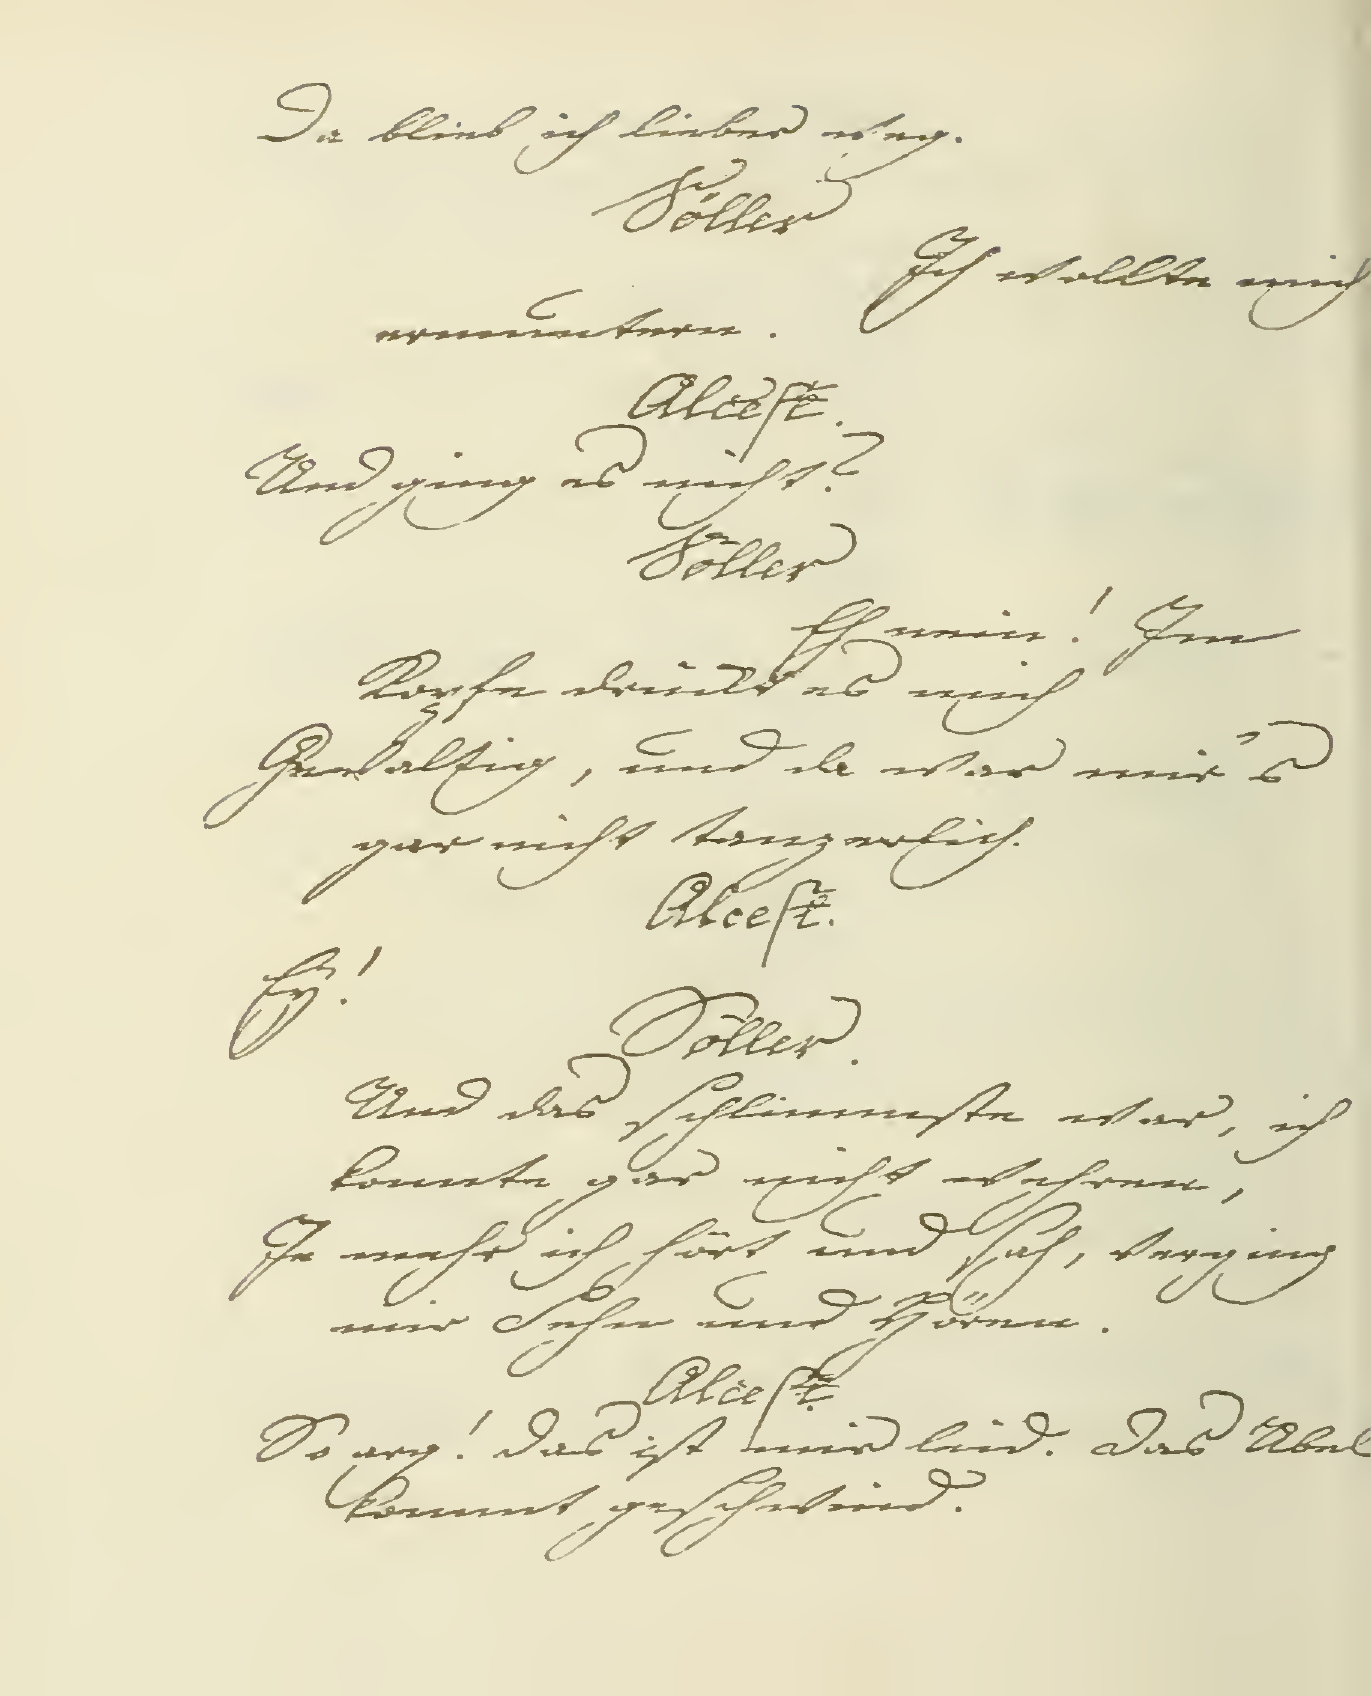 Da blieb ich lieber weg.
Söller
Ich wollte mich
ermuntern.
Alcest.
Und ging es nicht?
Söller
Eh nein! Im
Kopfe drückt es mich
Gewaltig, und da war mir's
gar nicht tanzerlich.
Alcest.
Ey!
Söller.
Und das schlimmste war, ich
konnte gar nicht wehren,
Je mehr ich hört und sah, verging
mir Sehn und Hören.
Alcest.
So arg! das ist mir leid. Das Übel
kommt geschwind.